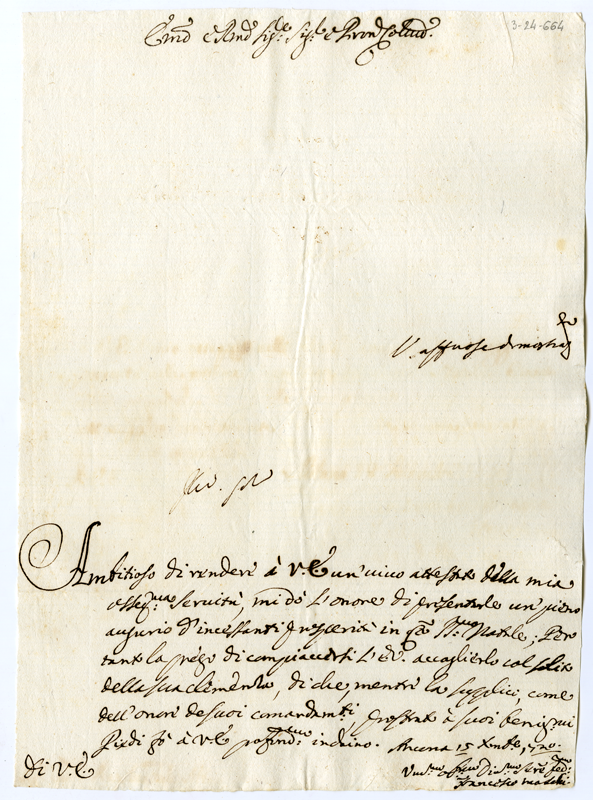 3-24-664
Em̃o e Rmo Sig.re Sig.r e Pron Col.mo
V. affettuose
Ambitioso di rendere à V.E. un vivo attestato della mia
osseq.ma servitù, mi dò l'onore di presentarle un pieno
augurio d'incessanti prosperità in q.to S.mo Natale; Per
tanto la prego di compiacersi l'E.V. accoglierlo col solito
della sua clemenza, di che mentre la supplico, come
dell'onore de suoi comandam.ti, prostrato à suoi benig.mi
Piedi fò à V.E. profond.mo inchino. Ancona 15 Xmbre 1720.
di V.E.
Francesco